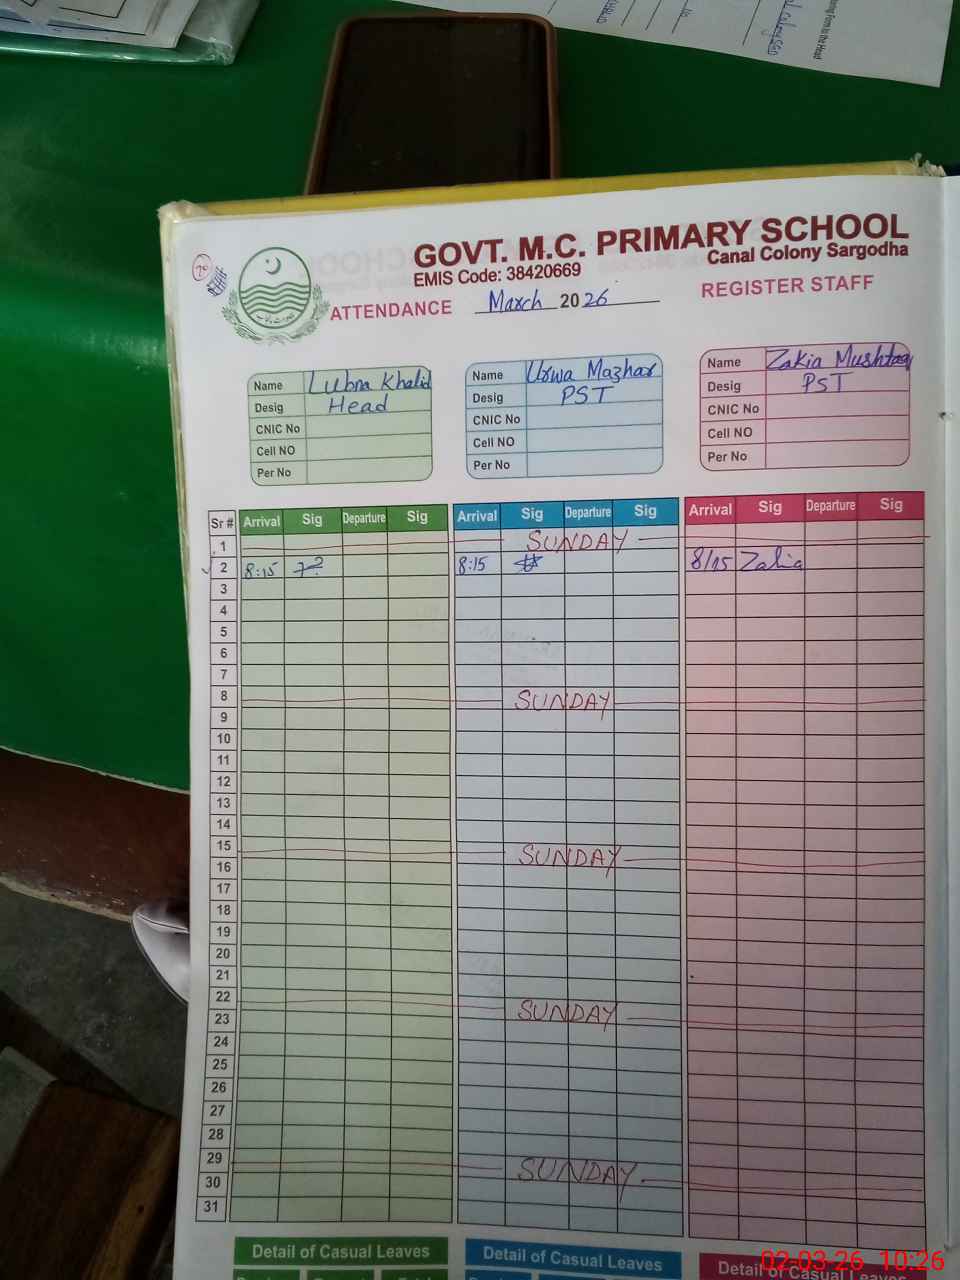 GOVT. M.C. PRIMARY SCHOOL
Canal Colony Sargodha
EMIS Code: 38420669
ATTENDANCE March 2026 REGISTER STAFF
Name Lubna Khalid
Desig Head
CNIC No
Cell NO
Per No
Name Urwa Mazhar
Desig PST
CNIC No
Cell NO
Per No
Name Zakia Mushtaq
Desig PST
CNIC No
Cell NO
Per No
Sr # Arrival Sig Departure Sig Arrival Sig Departure Sig Arrival Sig Departure Sig
1 SUNDAY
2 8:15 8:15 8/15 Zakia
3
4
5
6
7
8 SUNDAY
9
10
11
12
13
14
15 SUNDAY
16
17
18
19
20
21
22 SUNDAY
23
24
25
26
27
28
29 SUNDAY
30
31
Detail of Casual Leaves Detail of Casual Leaves Detail of Casual Leaves
02-03-26 10:26